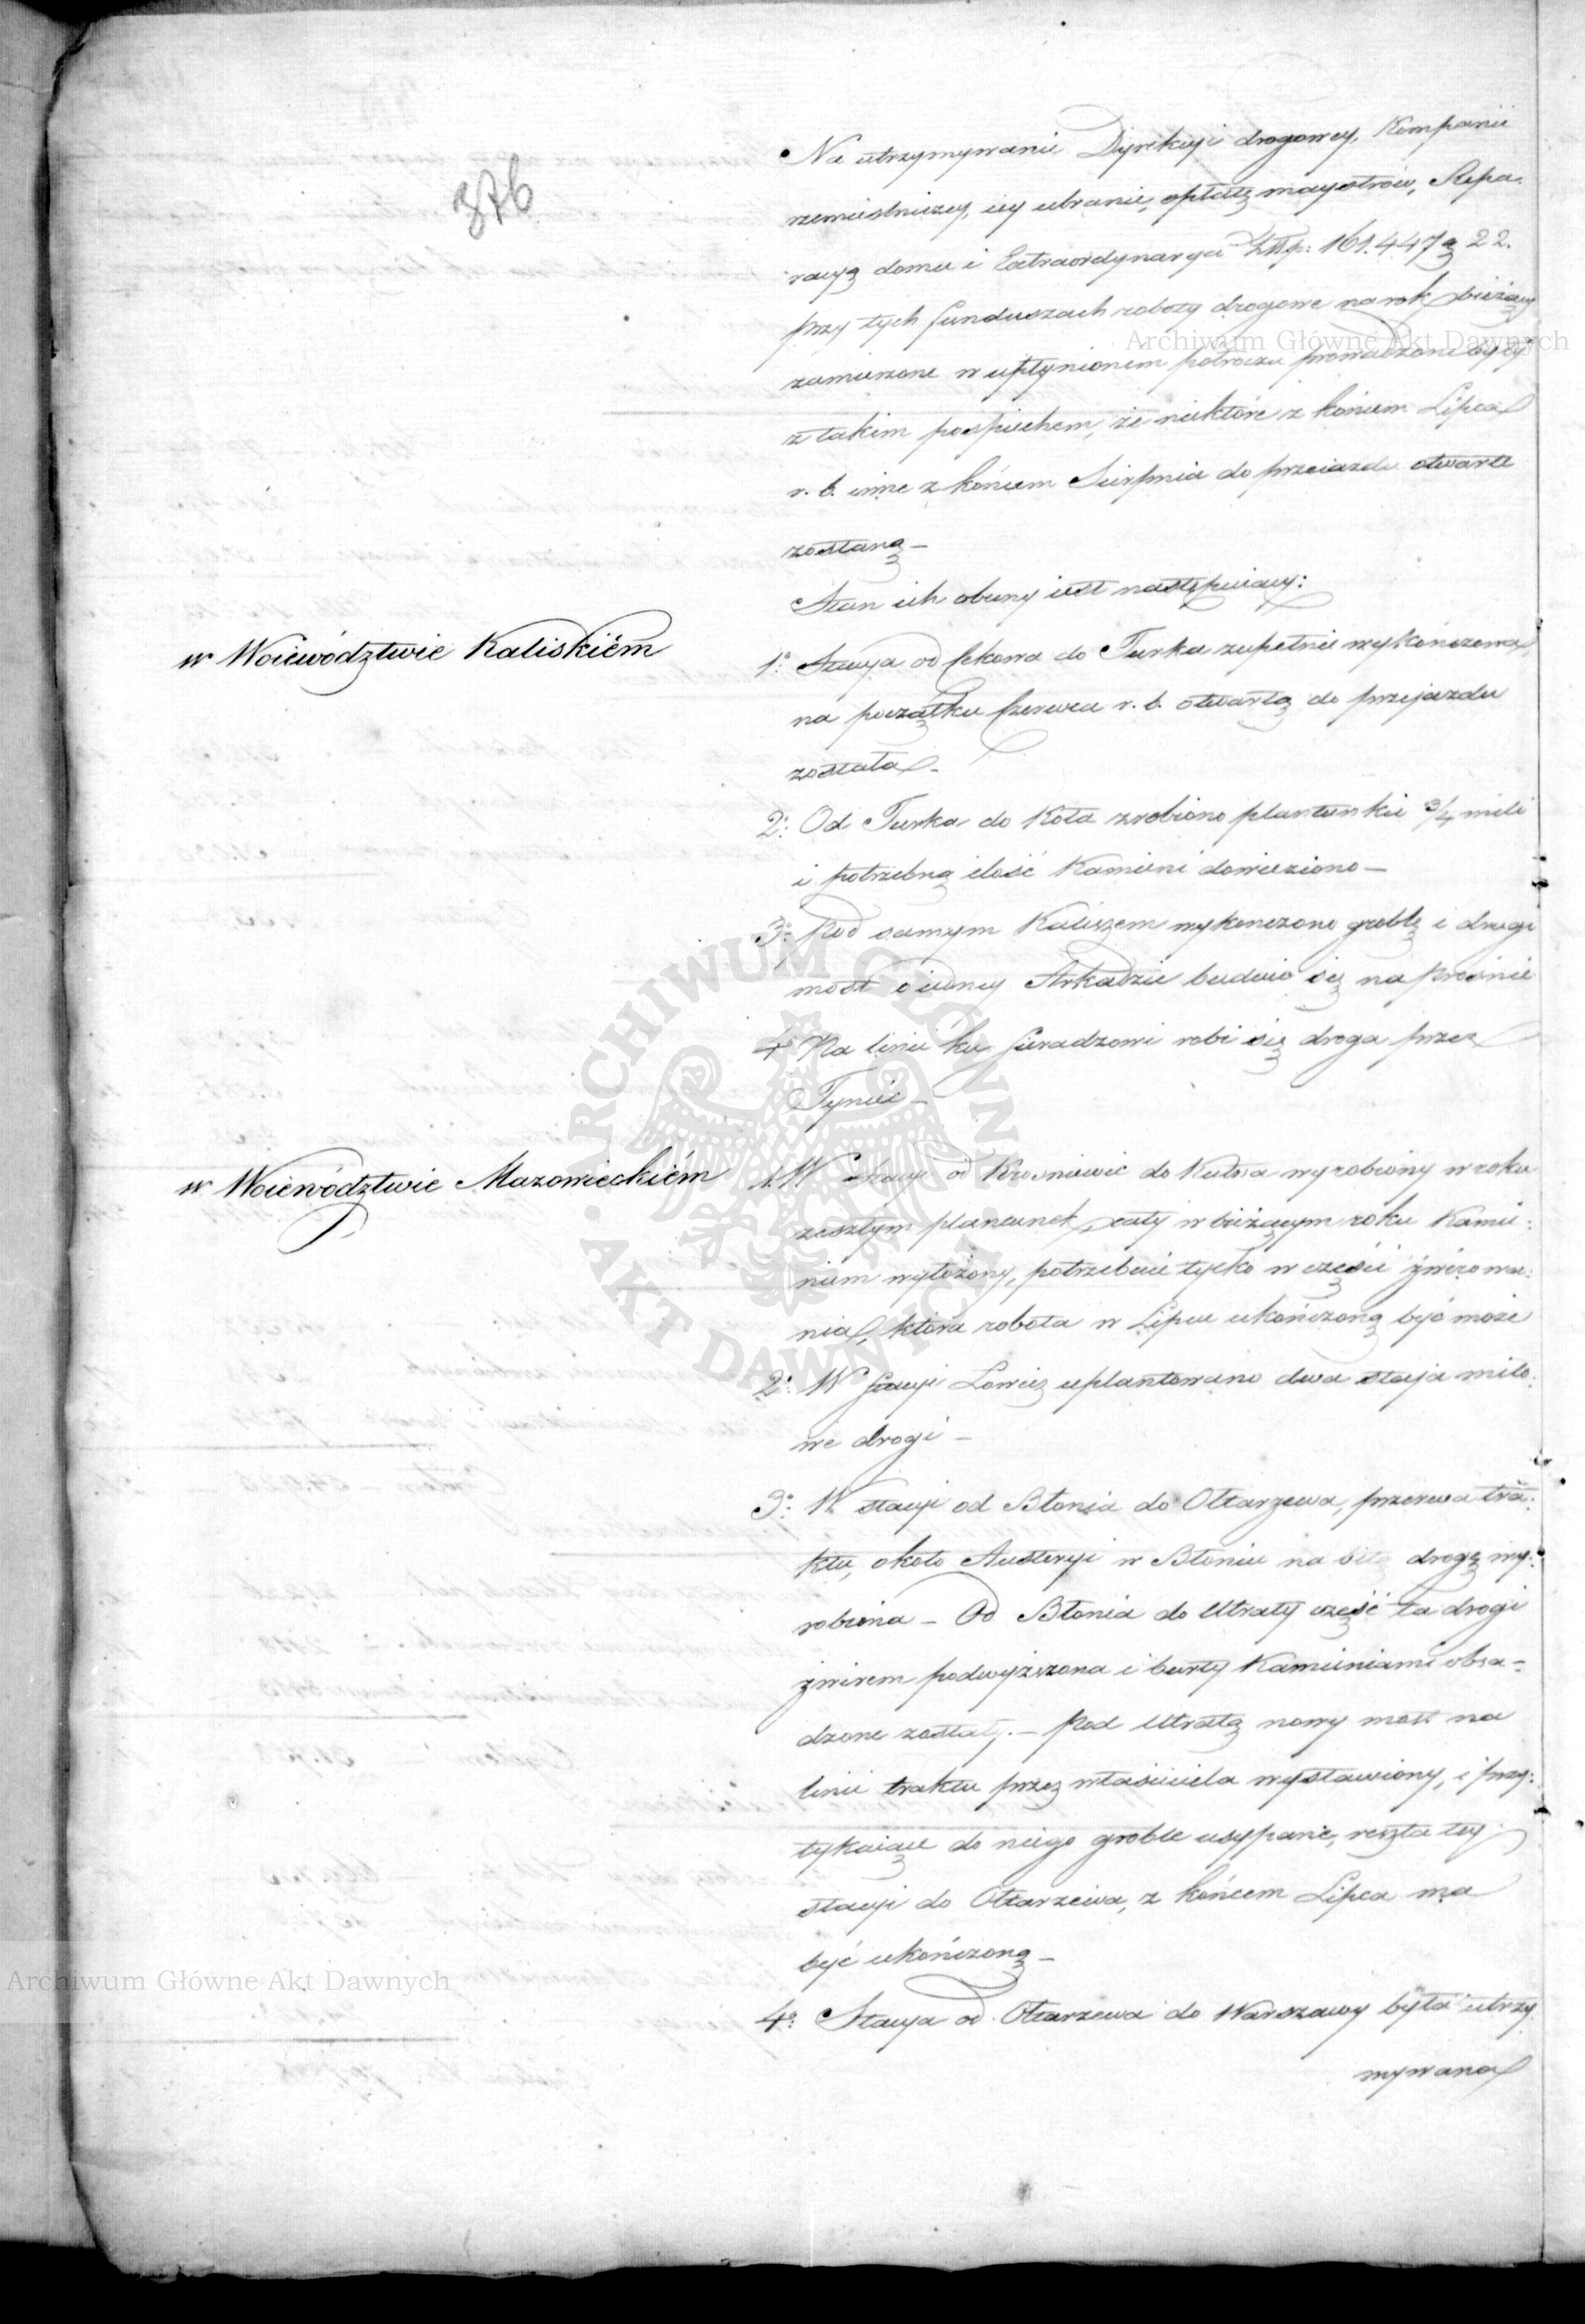 376
Na utrzymywanie Dyrekcyi drogowey, Kompanii
rzemieslniczey, iey ubranie, opłatę maystrów, Repa-
racyą domu i Extraordynarya Złłp: 161.447 g 22.
przy tych funduszach roboty drogowe na rok bieżący
zamierzone w upłynionem połroczu prowadzone były
z takim pospiechem, że niektóre z końcem Lipca
r. b. inne z końcem Sierpnia do przeiazdu otwarte
zostaną –
Stan ich obecny iest następuiący:
w Woiewództwie Kaliskiém
1o: Stacya od Cekowa do Turku zupełnie wykończona,
na początku Czerwca r. b. otwartą do przejazdu
została –
2o: Od Turka do Koła zrobiono plantunku 3/4 mili
i potrzebną ilość Kamieni dowieziono –
3o: Pod samym Kaliszem wykonczono groblę i drugi
most o iedney Arkadzie buduie się na Prosnie
4o Na linii ku Sieradzowi robi się droga przez
Tyniec –
w Woiewództwie Mazowieckiém
1. W stacyi od Krosniewic do Kutna wyrobiony w roku
zeszłym plantunek, cały w bieżącym roku Kamie:
niem wyłożony, potrzebuie tylko w części żwirowa:
nia, która robota w Lipcu ukończoną być może
2o: W stacyi Łowicz uplantowano dwa staja milo:
we drogi –
3o: W stacyi od Błonia do Ołtarzewa, przerwa tra:
ktu, około Austeryi w Błoniu na bitą drogę wy:
robiona – Od Błonia do Utraty część ta drogi
żwirem podwyższona i burty Kamieniami obsa–
dzone zostały. – Pod Utratą nowy most na
linii traktu przez właściciela wystawiony, i przy:
tykaiące do niego groble usypane, reszta tey
stacyi do Ołtarzewa, z końcem Lipca ma
być ukończoną –
4o: Stacya od Ołtarzewa do Warszawy była utrzy
mywana
Archiwum Główne Akt Dawnych
ARCHIWUM GŁÓWNE AKT DAWNYCH
Archiwum Główne Akt Dawnych